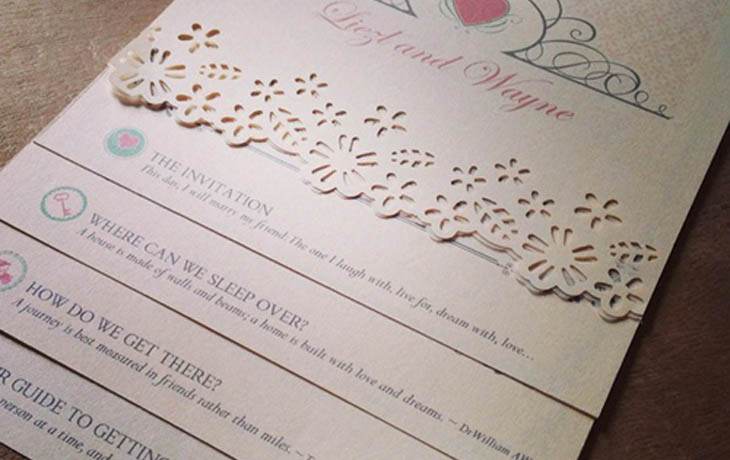 Liezl and Wayne
THE INVITATION
This day, I will marry my friend. The one I laugh with, live for, dream with, love...
WHERE CAN WE SLEEP OVER?
A house is made of walls and beams; a home is built with love and dreams. ~ Dr William
HOW DO WE GET THERE?
A journey is best measured in friends rather than miles. ~
GUIDE TO GETTING
person at a time, and